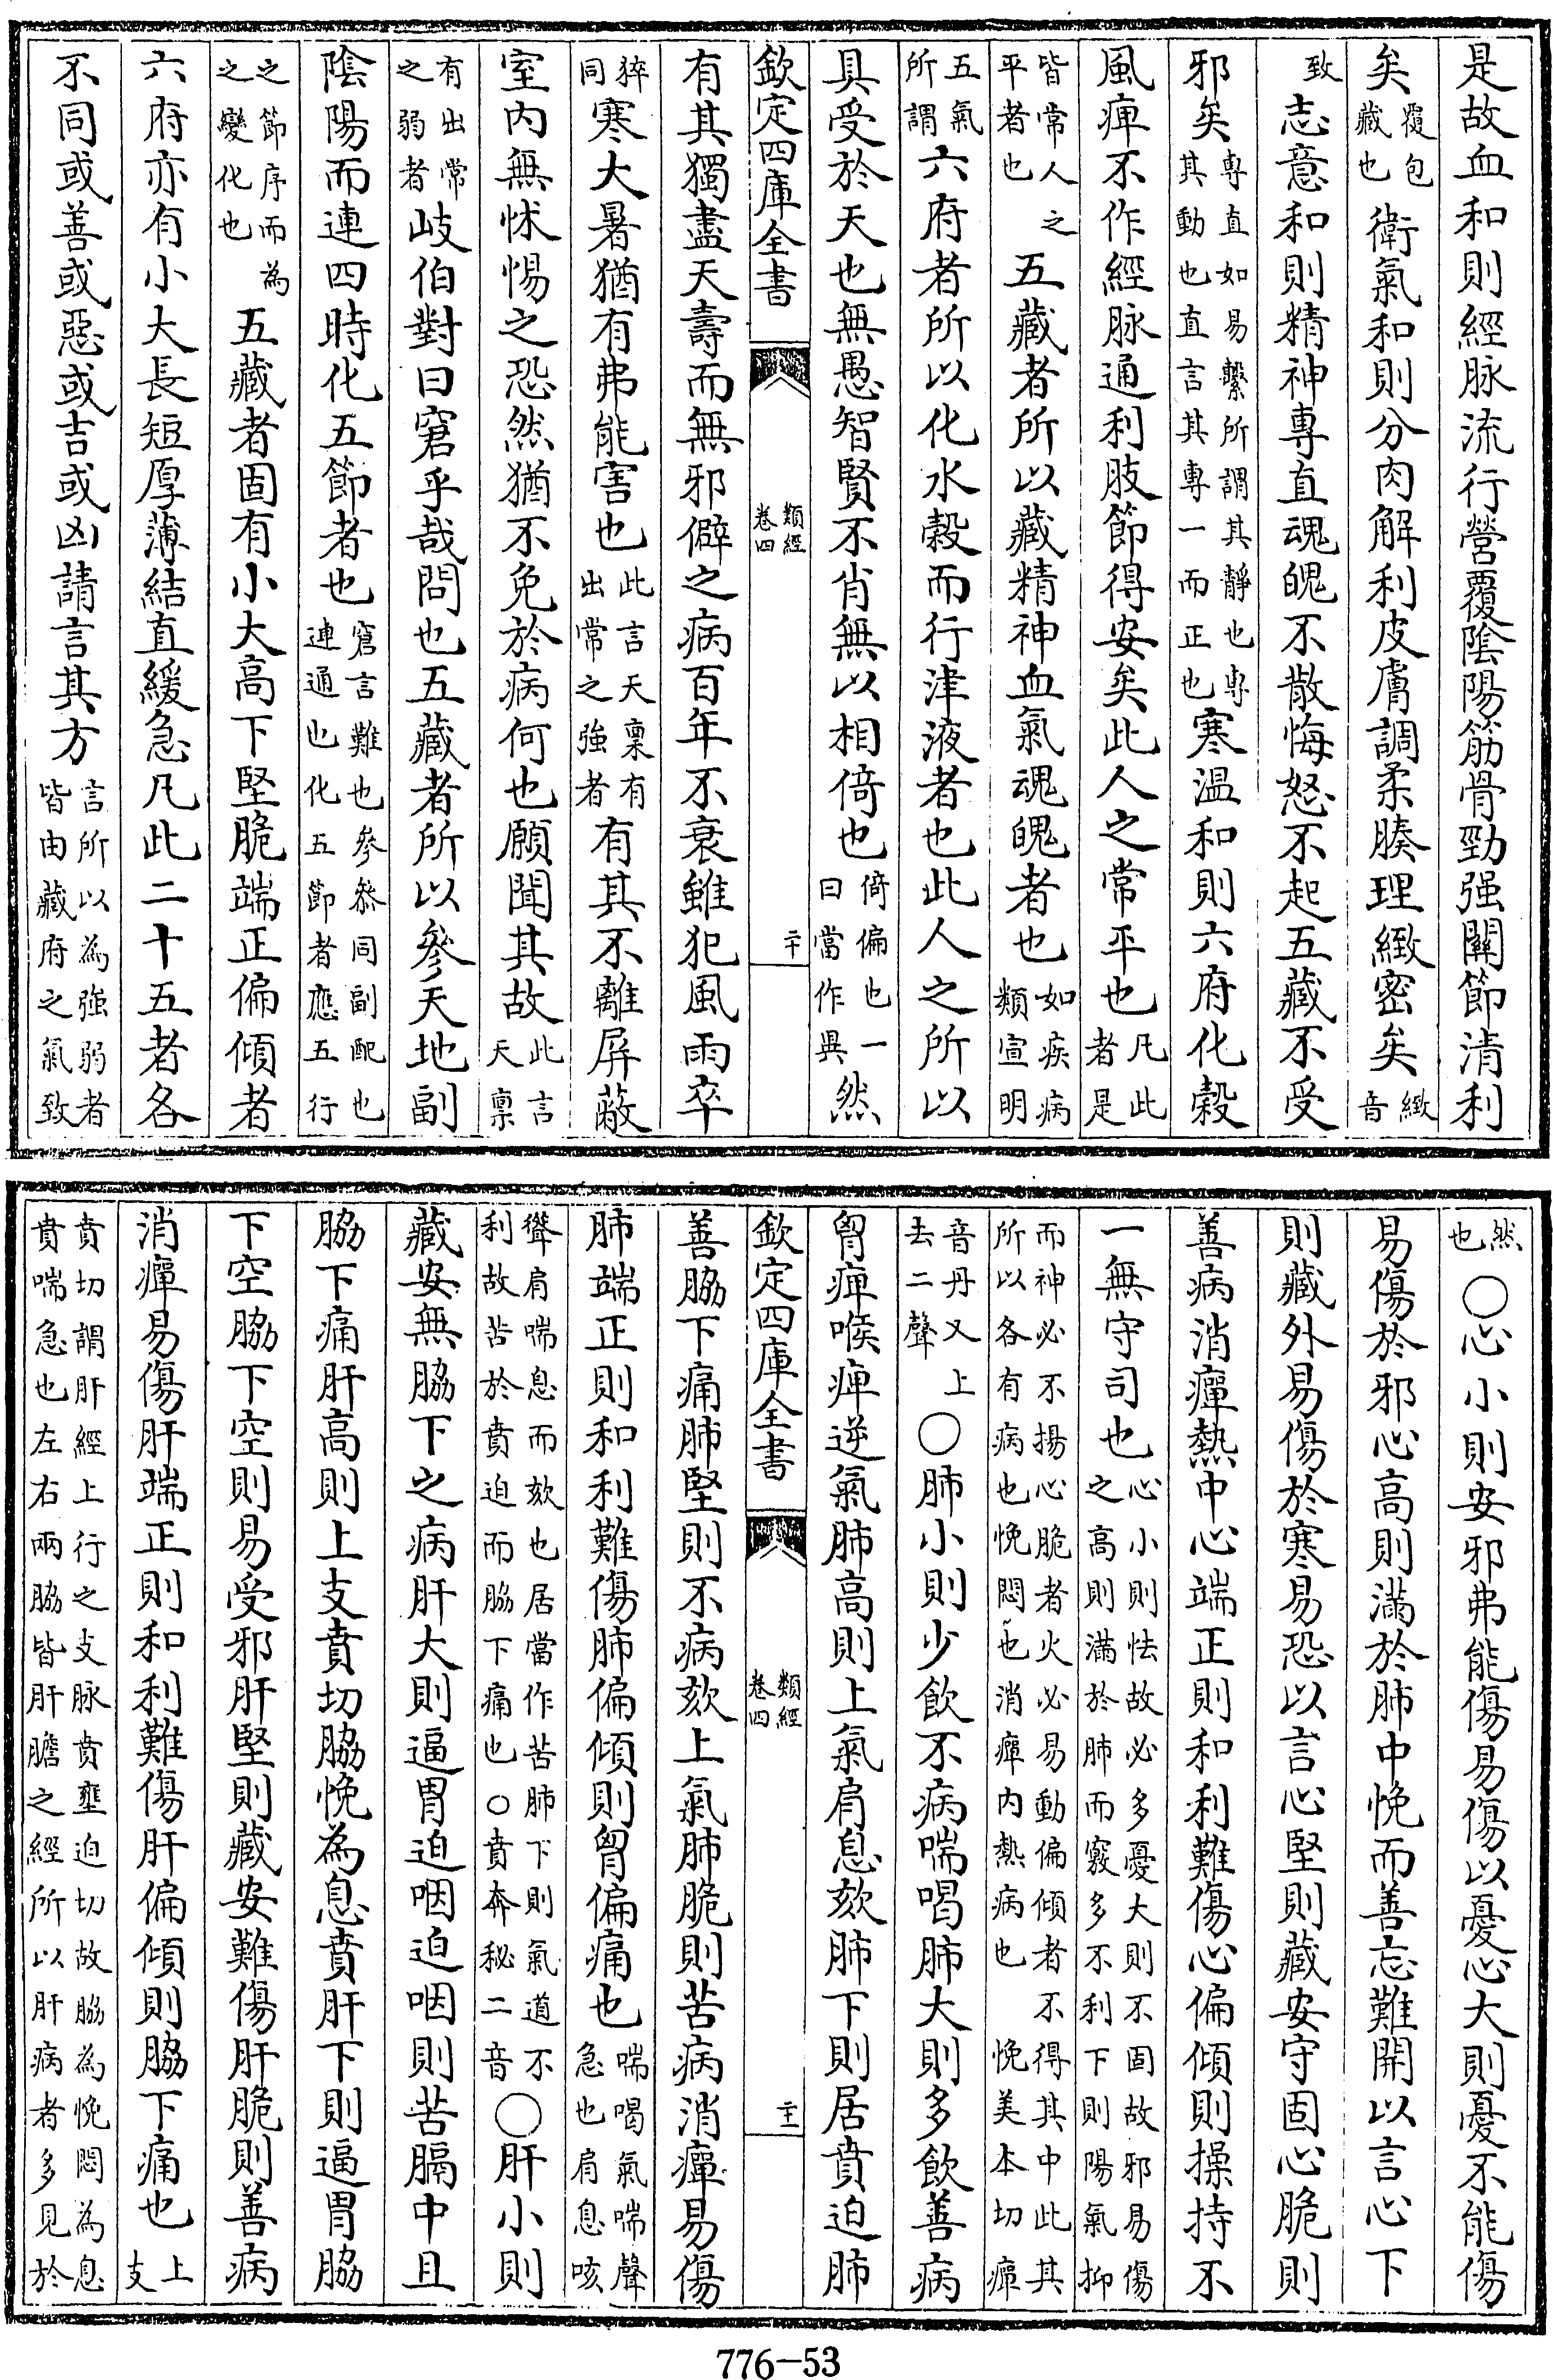 是故血和則經脉流行營覆陰陽筋骨勁强關節清利
矣覆包藏也衛氣和則分肉解利皮膚調柔腠理緻密矣緻音
致志意和則精神專直魂魄不散悔怒不起五藏不受
邪矣專直如易繫所謂其靜也專其動也直言其專一而正也寒温和則六府化穀
風痺不作經脉通利肢節得安矣此人之常平也凡此者是
皆常人之平者也五藏者所以藏精神血氣魂魄者也如疾病類宣明
五氣所謂六府者所以化水穀而行津液者也此人之所以
具受於天也無愚智賢不肖無以相倚也倚偏也一曰當作異然
欽定四庫全書 類經卷四 二十
有其獨盡天壽而無邪僻之病百年不衰雖犯風雨卒
猝同寒大暑猶有弗能害也此言天稟有出常之強者有其不離屏蔽
室内無怵惕之恐然猶不免於病何也願聞其故此言天稟
有出常之弱者岐伯對曰窘乎哉問也五藏者所以參天地副
陰陽而連四時化五節者也窘言難也參叅同副配也連通也化五節者應五行
之節序而為之變化也五藏者固有小大高下堅脆端正偏傾者
六府亦有小大長短厚薄結直緩急凡此二十五者各
不同或善或惡或吉或凶請言其方言所以為強弱者皆由藏府之氣致
然也〇心小則安邪弗能傷易傷以憂心大則憂不能傷
易傷於邪心高則滿於肺中悗而善忘難開以言心下
則藏外易傷於寒易恐以言心堅則藏安守固心脆則
善病消癉熱中心端正則和利難傷心偏傾則操持不
一無守司也心小則怯故必多憂大則不固故邪易傷之高則滿於肺而竅多不利下則陽氣抑
而神必不揚心脆者火必易動偏傾者不得其中此其所以各有病也悗悶也消癉内熱病也悗美本切癉
音丹又上去二聲〇肺小則少飲不病喘喝肺大則多飲善病
胷痺喉痺逆氣肺高則上氣肩息欬肺下則居賁迫肺
欽定四庫全書 類經卷四 二十一
善脇下痛肺堅則不病欬上氣肺脆則苦病消癉易傷
肺端正則和利難傷肺偏傾則胷偏痛也喘喝氣喘聲急也肩息咳
聳肩喘息而欬也居當作苦肺下則氣道不利故苦於賁迫而脇下痛也○賁奔秘二音〇肝小則
藏安無脇下之病肝大則逼胃迫咽迫咽則苦膈中且
脇下痛肝高則上支賁切脇悗為息賁肝下則逼胃脇
下空脇下空則易受邪肝堅則藏安難傷肝脆則善病
消癉易傷肝端正則和利難傷肝偏傾則脇下痛也上支
賁切謂肝經上行之支脉賁壅迫切故脇為悗悶為息賁喘急也左右兩脇皆肝膽之經所以肝病者多見於
776-53